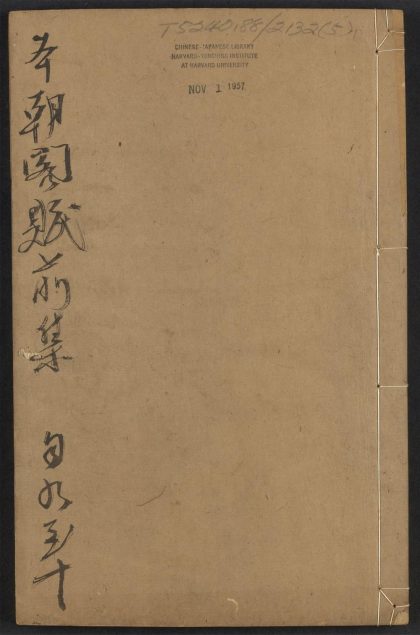 T5240.88/2132(5)
CHINESE-JAPANESE LIBRARY
HARVARD-YENCHING INSTITUTE
AT HARVARD UNIVERSITY
NOV 1 1957
本朝閣賦前集 自九至十